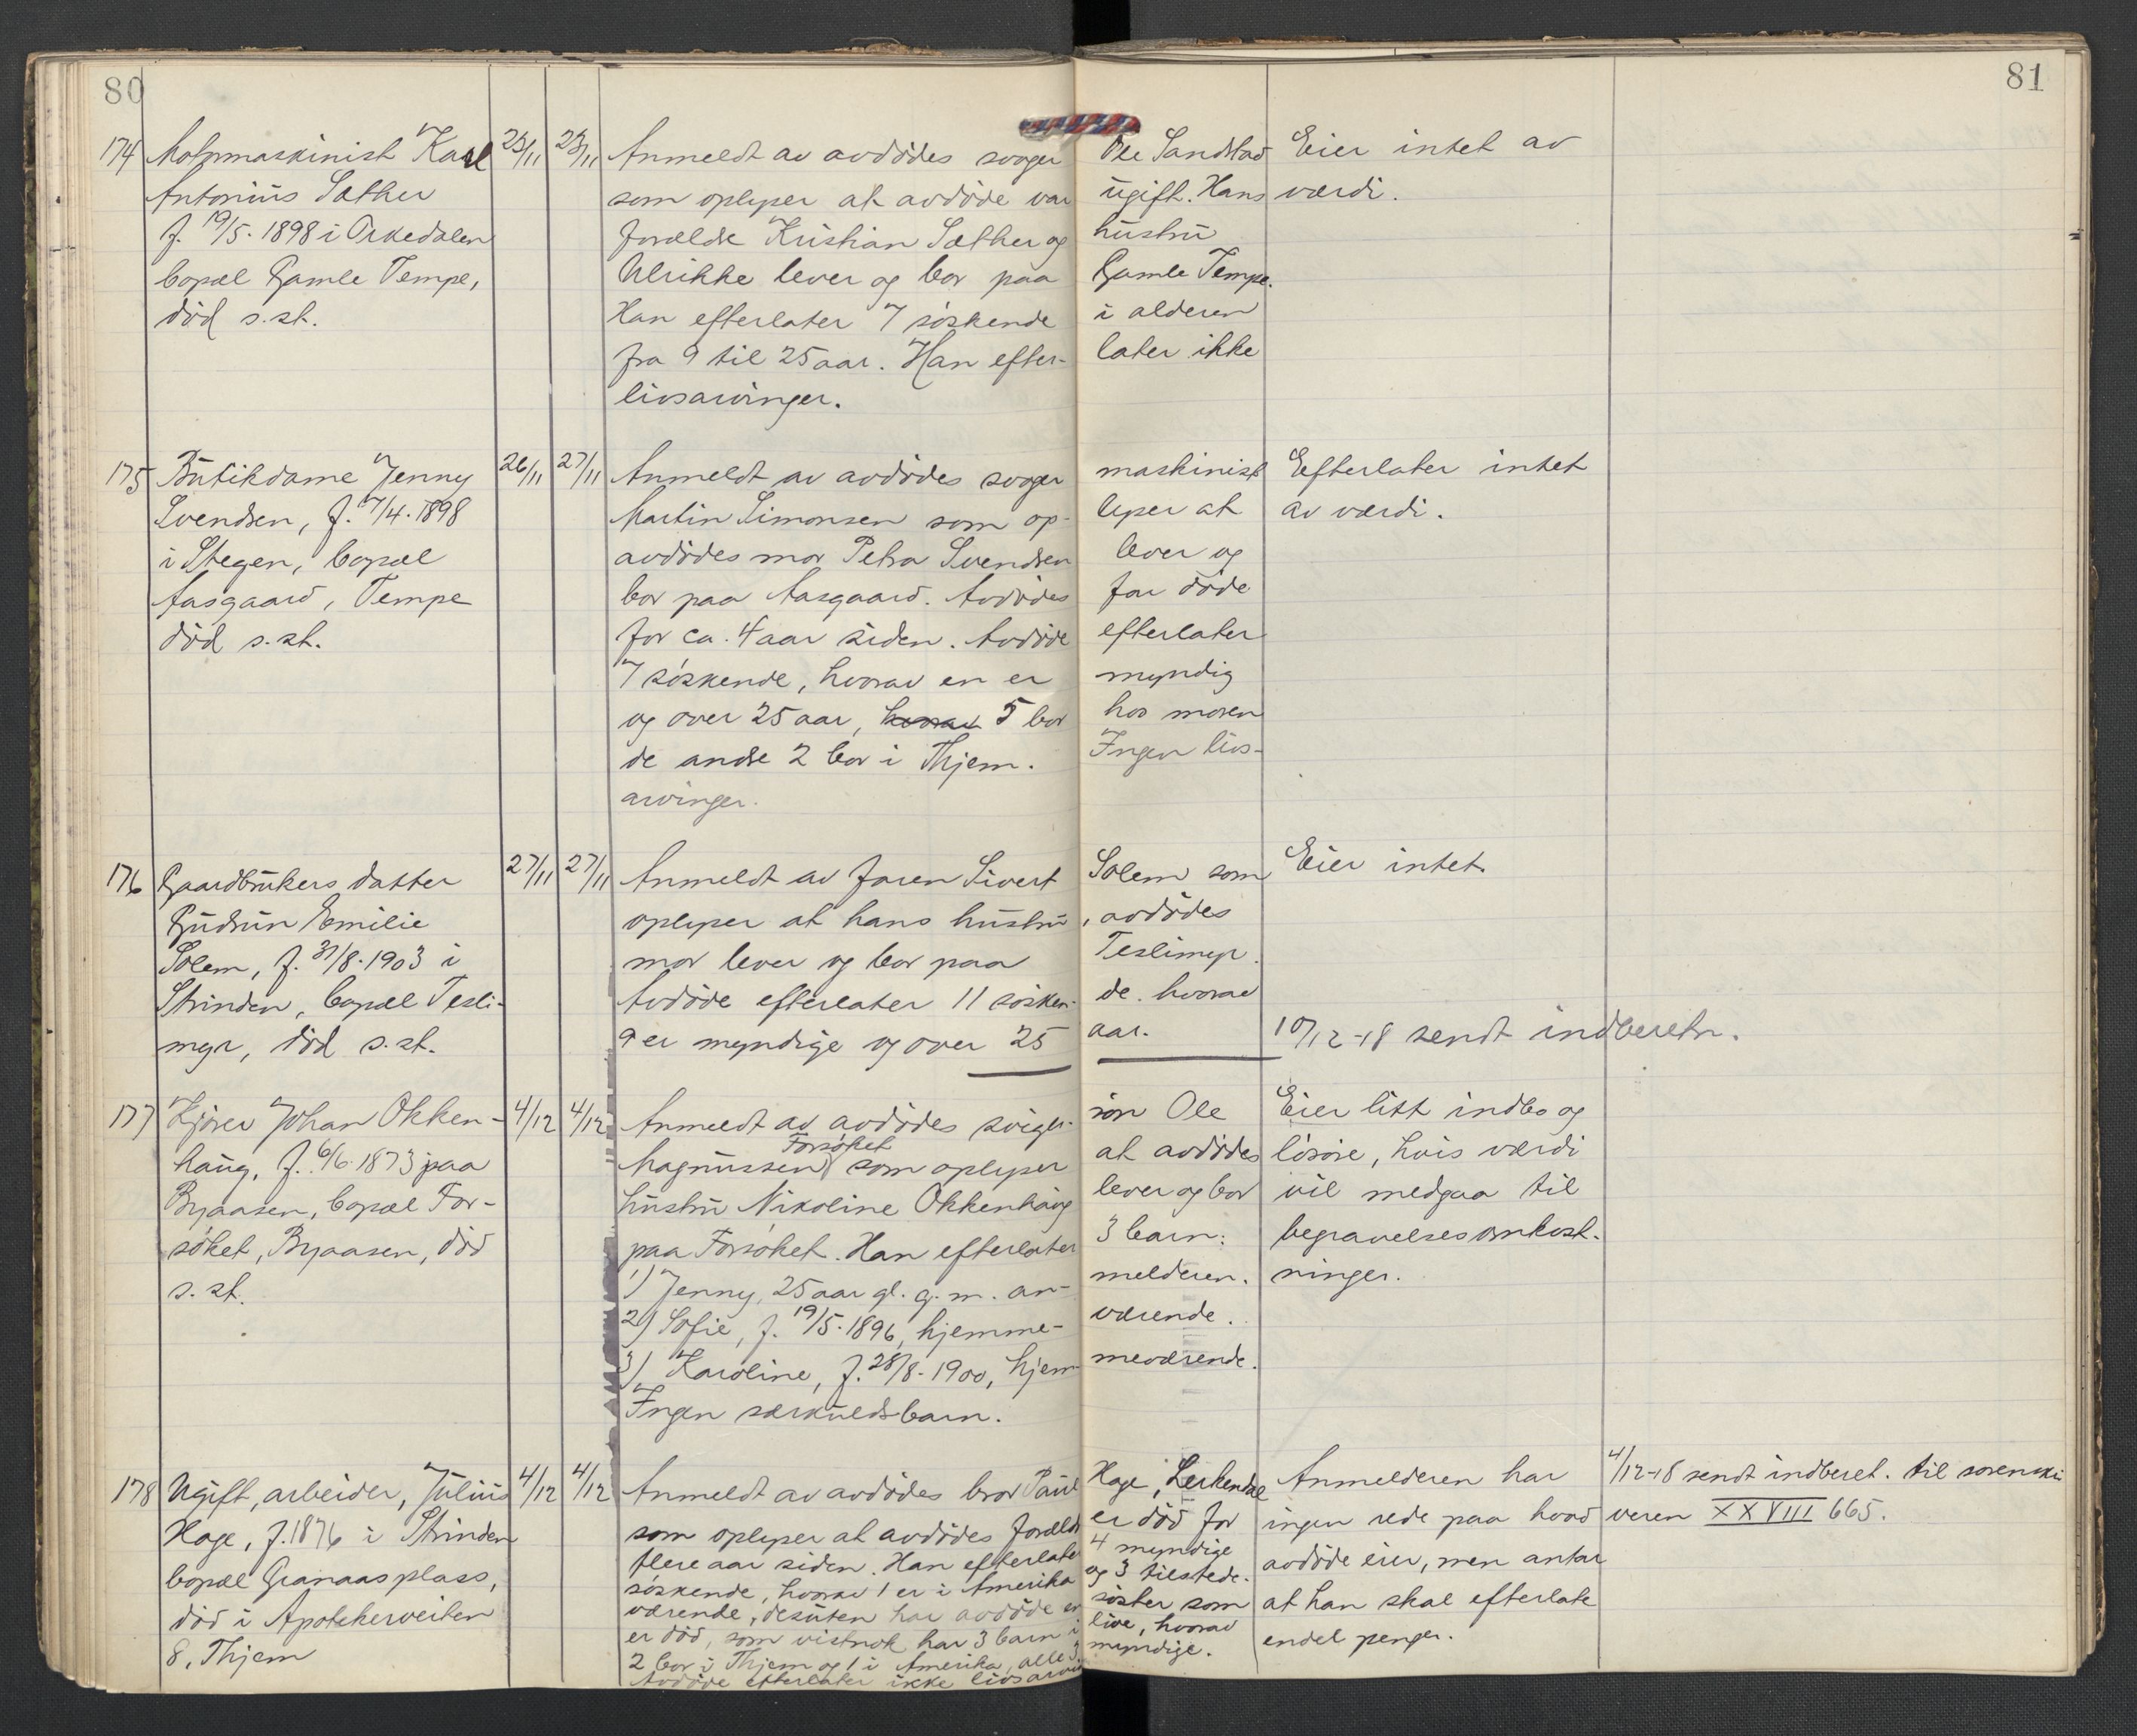 80
81
174 Motormaskinist Karl 23/11 23/11 Anmeldt av avdødes svoger Ole Sandstad Eier intet av
Antonius Sæther som oplyser at avdøde var ugift. Hans værdi.
f. 19/5. 1898 i Orkedalen forældre Kristian Sæther og hustru
bopæl Gamle Tempe, Ulrikke lever og bor paa Gamle Tempe.
død s.st. Han efterlater 7 søskende i alderen
fra 9 til 25 aar. Han efter- later ikke
livsarvinger.
175 Butikdame Jenny 26/11 27/11 Anmeldt av avdødes svoger maskinist Efterlater intet
Svendsen, f. 7/4. 1898 Martin Simonsen som op- lyser at av værdi.
i Stegen, bopæl avdødes mor Petra Svendsen lever og
Aasgaard, Tempe bor paa Aasgaard. Avdødes far døde
død s.st. for ca. 4 aar siden. Avdøde efterlater
7 søskende, hvorav en er myndig
og over 25 aar, hvorav 5 bor hos moren
de andre 2 bor i Thjem. Ingen livs-
arvinger.
176 Gaardbrukers datter 27/11 27/11 Anmeldt av faren Sivert Solem som Eier intet.
Gudrun Emilie oplyser at hans hustru, avdødes
Solem, f. 31/8. 1903 i mor lever og bor paa Teslimyr.
Strinden, bopæl Tesli- Avdøde efterlater 11 søsken- de. hvorav
myr, død s.st. 9 er myndige og over 25 aar. 10/12-18 sendt indberetn.
177 Kjører Johan Okken- 4/12 4/12 Anmeldt av avdødes sviger- søn Ole Eier litt indbo og
haug, f. 6/6. 1873 paa Magnussen Forsøket som oplyser at avdødes løsøre, hvis værdi
Byaasen, bopæl For- hustru Nikoline Okkenhaug lever og bor vil medgaa til
søket, Byaasen, død paa Forsøket. Han efterlater 3 barn: begravelsesomkost-
s.st. 1) Jenny, 25 aar gl. g. m. an- melderen. ninger.
2) Sofie, f. 19/5. 1896, hjemme- værende.
3) Karoline, f. 28/8. 1900, hjem- meværende.
Ingen særkuldsbarn.
178 Ugift, arbeider, Julius 4/12 4/12 Anmeldt av avdødes bror Paul Hage, Lerkendal Anmelderen har 4/12-18 sendt indberet. til sorenskri
Hage, f. 1876 i Strinden som oplyser at avdødes forældre er død for ingen rede paa hvad veren XXVIII 665.
bopæl Granaas plass, flere aar siden. Han efterlater 4 myndige avdøde eier, men antar
død i Apotekerveiten søskende, hvorav 1 er i Amerika og 3 tilstede- at han skal efterlate
8, Thjem værende, desuten har avdøde en søster som endel penger.
er død, som vistnok har 3 barn i live, hvorav
2 bor i Thjem og 1 i Amerika, alle 3 myndige.
Avdøde efterlater ikke livsarvin